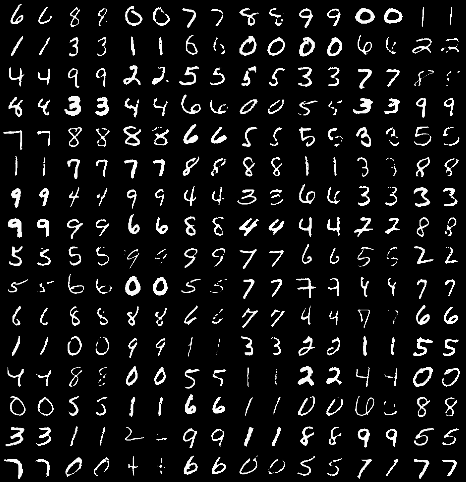 6 6 8 9 0 0 7 7 8 8 9 9 0 0 1 1
1 1 3 3 1 1 6 6 0 0 0 0 6 6 2 2
4 4 9 9 2 2 5 5 5 5 3 3 7 7 8 8
8 8 3 3 4 4 6 6 0 0 5 5 3 3 9 9
7 7 8 8 8 8 6 6 5 5 5 5 3 3 5 5
1 1 7 7 7 7 8 8 8 8 1 1 3 3 8 8
9 9 4 4 9 9 4 4 3 3 6 6 3 3 3 3
9 9 9 9 6 6 8 8 4 4 4 4 2 2 8 8
5 5 5 5 9 9 9 9 7 7 6 6 5 5 2 2
5 5 6 6 0 0 5 5 7 7 7 9 4 4 7 7
6 6 8 8 8 8 6 6 7 7 4 4 7 7 6 6
1 1 0 0 9 9 1 1 3 3 2 2 1 1 5 5
4 4 8 8 0 0 5 5 1 1 2 2 4 4 0 0
0 0 5 5 1 1 6 6 1 1 0 0 6 8 8
3 3 1 1 2 9 9 1 1 8 8 9 9 5 5
7 7 0 0 4 6 6 0 0 5 5 7 1 7 7